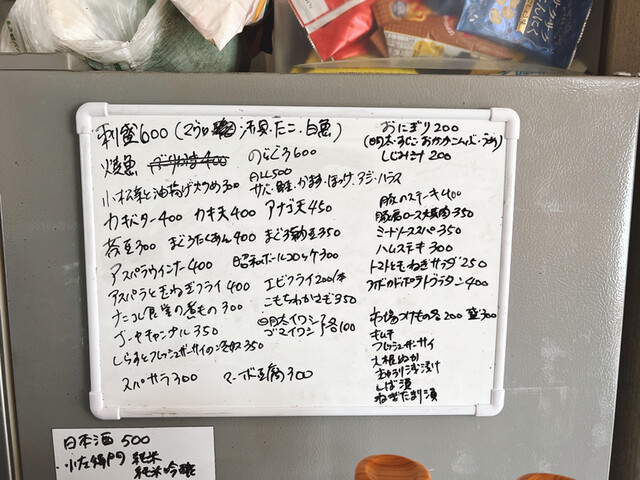 刺盛600(マグロ 沛貝・たこ・白魚)
焼魚 のどぐろ600
白ハラ500
サバ・鮭・かます・ほっけ・アジ・ハラス
小松菜と油揚げ炒め300
カキバター400 カキ天400 アナゴ天450
茶豆300 まぐろたくあん400 まぐろ納豆350
アスパラウインナー400 昭和ボールコロッケ300
アスパラと玉ねぎフライ400 エビフライ200/本
ナニコレ食堂の煮もの300 こもちわかさぎ350
ゴーヤチャンプル350 明太イワシ ゴマイワシ 各100
しらすとフレッシュザーサイの冷奴350
スパサラ300 マーボ豆腐300
おにぎり200
(明太・すじこ・おかか・こんぶ・うめ)
しじみ汁200
豚のステーキ400
豚肩ロース焼肉350
ミートソーススパ350
ハムステーキ300
トマトと玉ねぎサラダ250
アボカドポテトグラタン400
市場のつけもの各200 盛300
キムチ
フレッシュザーサイ
大根ぬか
きゅうり浅漬け
しば漬
ねぎたまり漬
日本酒500
小左衛門 純米
純米吟醸